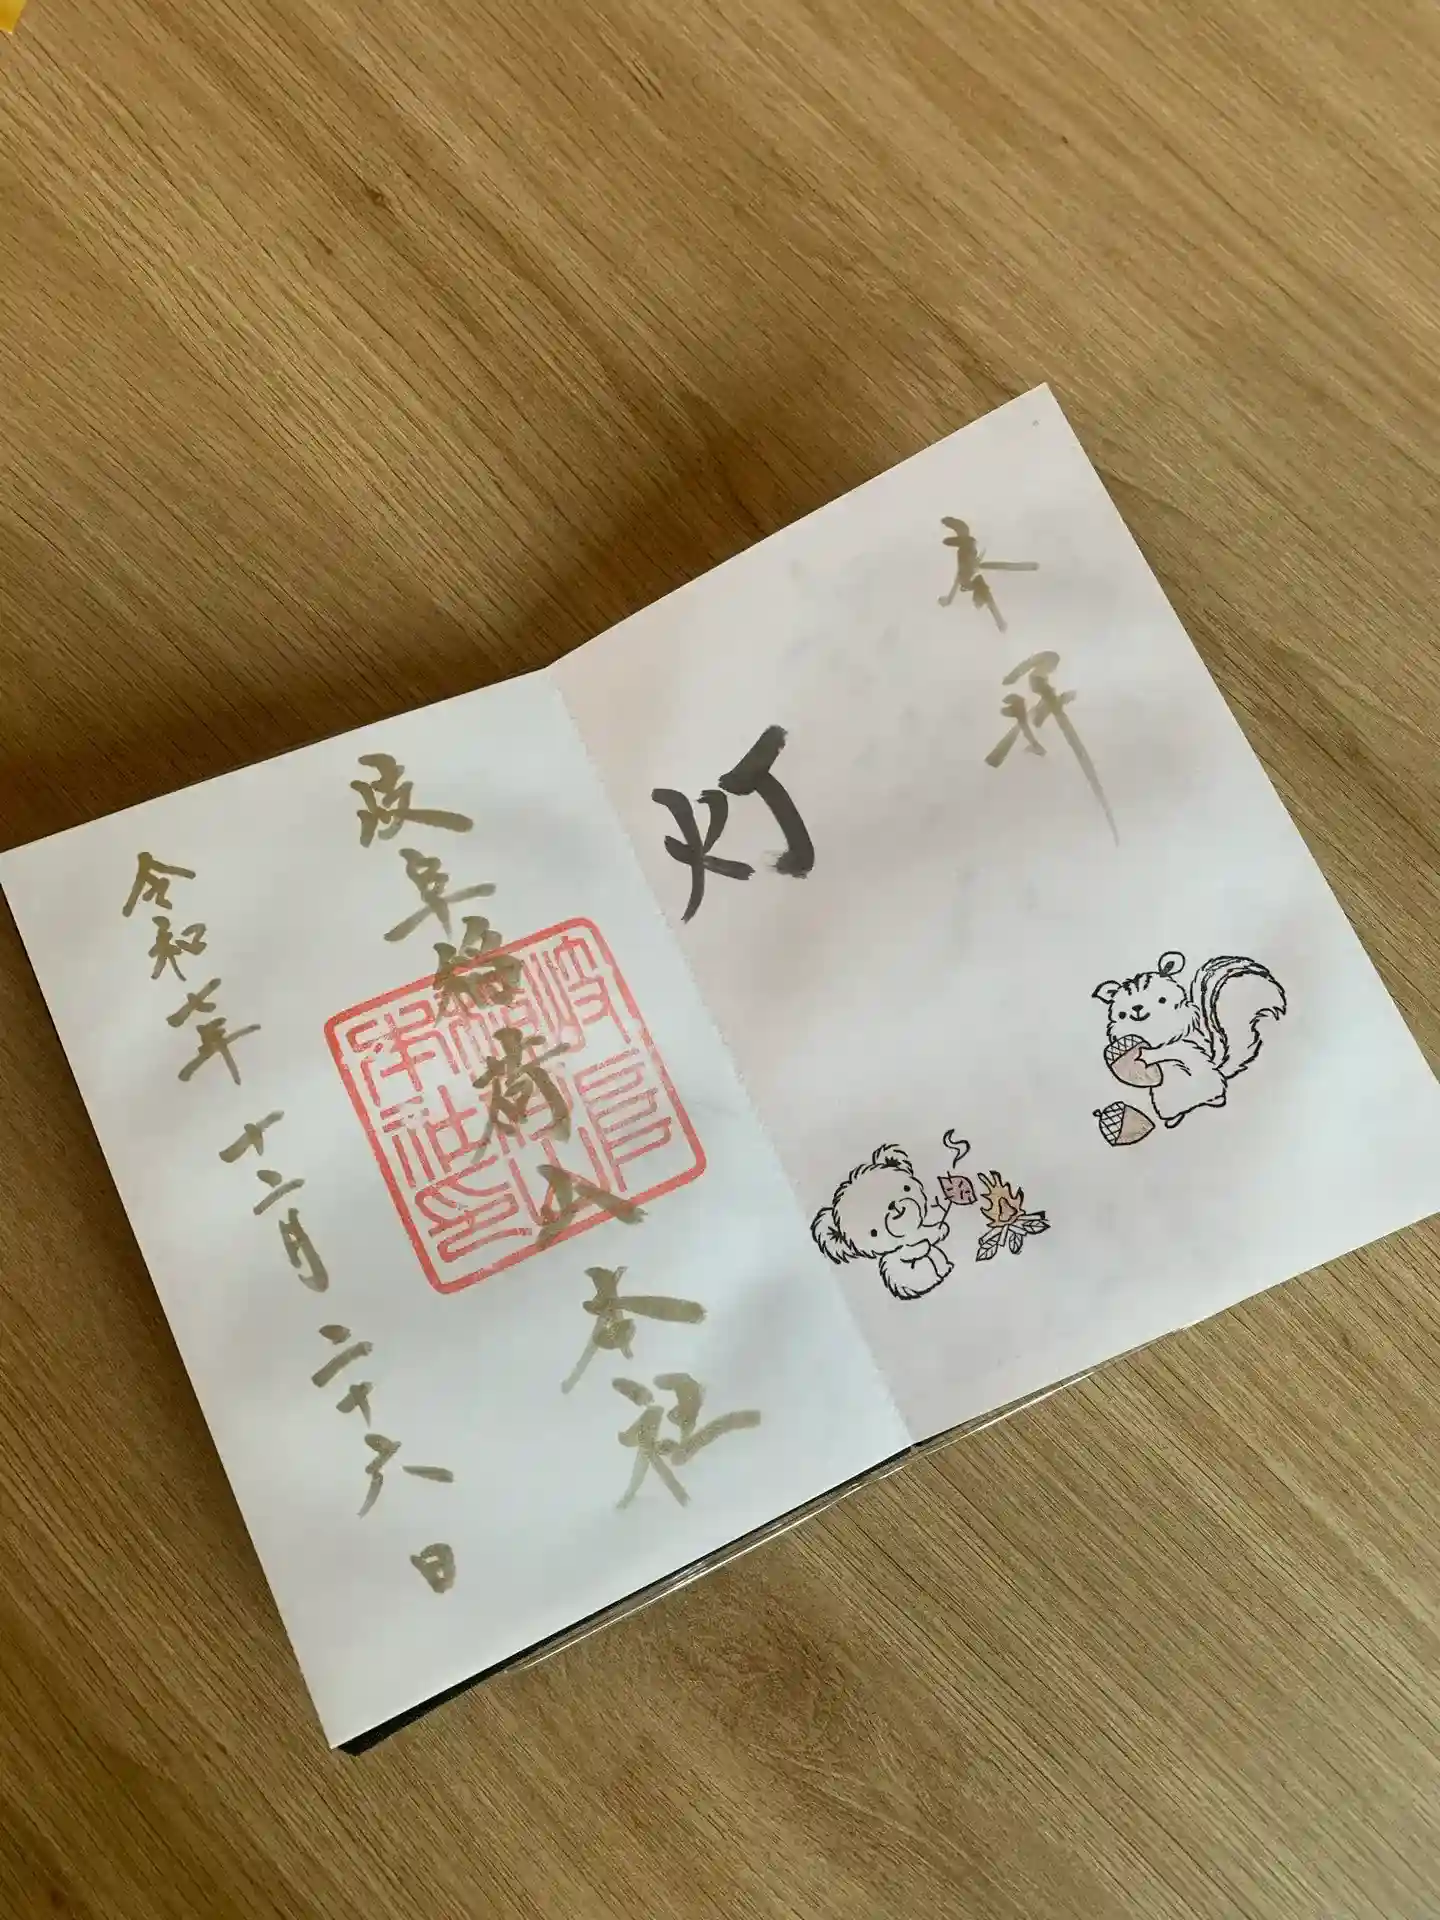 奉拝
灯
岐阜稲荷山本社
岐阜稲荷山本社印
令和七年十二月二十六日